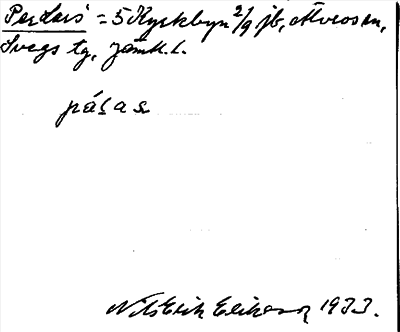 Perlars = 5 Kyrkbyn 2/9 jb, Älvros sn,
Svegs tg, Jämtl. l.
pá̱ɩas
Nils Erik Eliasson 1933.